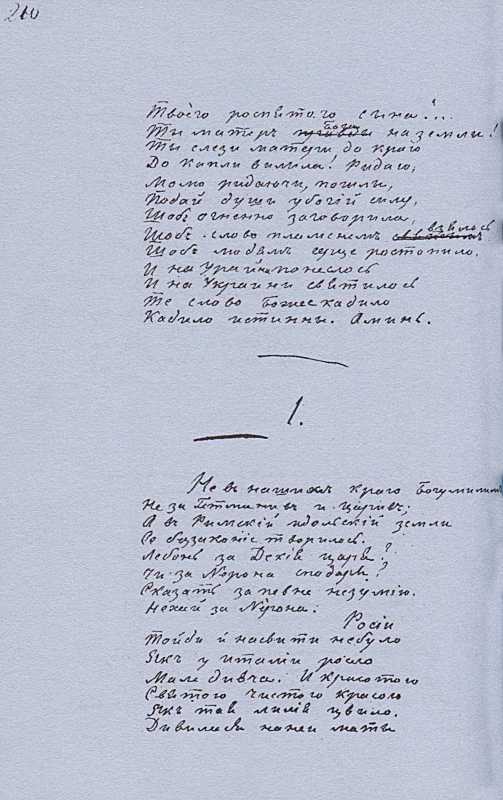 210
Твоего роспятого сина!...
Божи
Ти матеръ на земли!
Ти слези матери до краю
До капли вилила! Ридаю,
Молю ридаючи, пошли,
Подай души убогій силу,
Щобъ огненно заговорила,
взялось
Щобъ слово пламенемъ
Щобъ людямъ серце ростопило.
И на Украйни понеслось
И на Украини святилось
Те слово Божеє кадило
Кадило истинны. Аминь.
1.
Не въ нашимъ краю Богумилимъ
Не за Гетманивъ и царивъ;
А въ Римскій идольскій земли
Се беззаконіе творилось.
Либонь за Декія царя?
Чи за Нерона сподаря?
Сказать запевне незумію.
Нехай за Нерона:
Росіи
Тойди й на свити небуло
Якъ у италіи росло
Мале дивча. И красотою
Святого чистого красою
Якъ тая лилія цвило.
Дивилася на неи мати